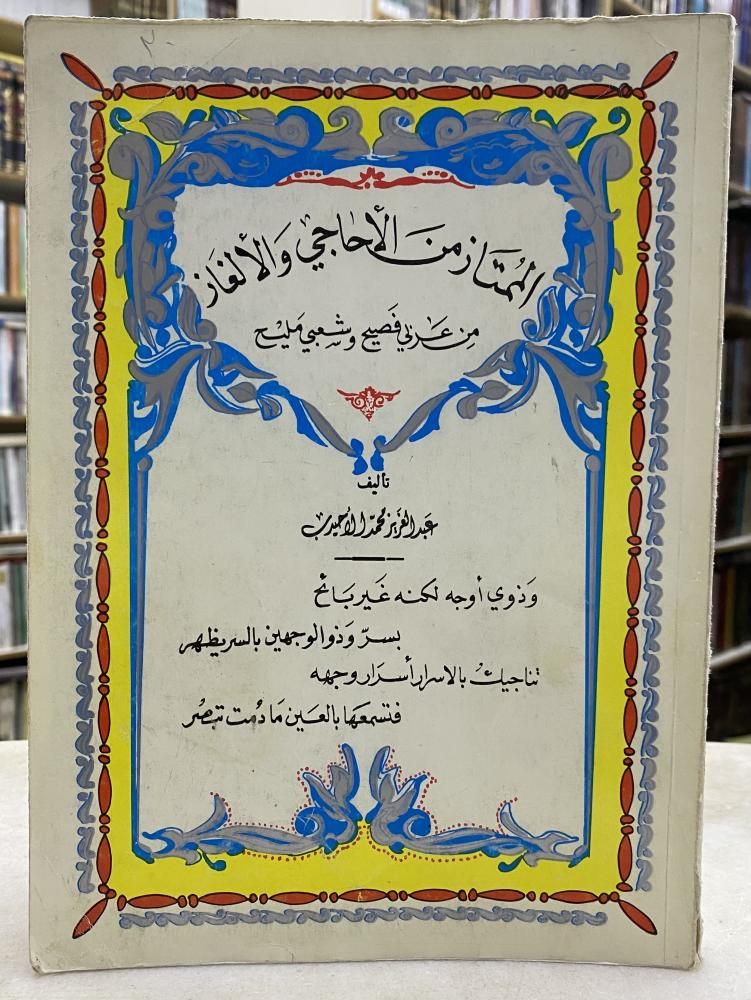 الممُتَاز منَ الأحَاجي وَالألغَاز
مِن عَربي فَصِيح وشَعبي مَليْح
تأليف
عَبد العَزيز محمّد الأحيدب
وَذوي أوجه لكنه غَير بَائح
بسرّ وَذو الوجهين بالسر يظهر
تناجيك بالاسرار أسرَار وجهه
فتسمعهَا بالعَين مَا دُمت تبصُر